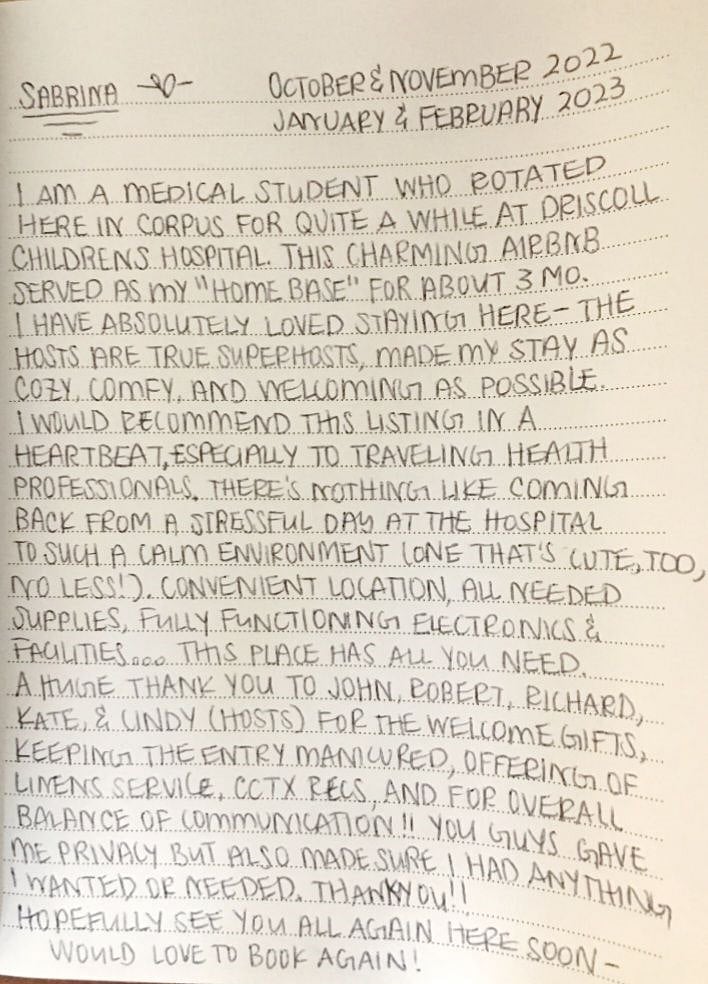 SABRINA OCTOBER & NOVEMBER 2022
JANUARY & FEBRUARY 2023
I AM A MEDICAL STUDENT WHO ROTATED
HERE IN CORPUS FOR QUITE A WHILE AT DRISCOLL
CHILDRENS HOSPITAL. THIS CHARMING AIRBNB
SERVED AS MY "HOME BASE" FOR ABOUT 3 MO.
I HAVE ABSOLUTELY LOVED STAYING HERE - THE
HOSTS ARE TRUE SUPERHOSTS, MADE MY STAY AS
COZY, COMFY, AND WELCOMING AS POSSIBLE.
I WOULD RECOMMEND THIS LISTING IN A
HEARTBEAT, ESPECIALLY TO TRAVELING HEALTH
PROFESSIONALS. THERE'S NOTHING LIKE COMING
BACK FROM A STRESSFUL DAY AT THE HOSPITAL
TO SUCH A CALM ENVIRONMENT (ONE THAT'S CUTE, TOO,
NO LESS!). CONVENIENT LOCATION, ALL NEEDED
SUPPLIES, FULLY FUNCTIONING ELECTRONICS &
FACILITIES.... THIS PLACE HAS ALL YOU NEED.
A HUGE THANK YOU TO JOHN, ROBERT, RICHARD,
KATE, & CINDY (HOSTS) FOR THE WELCOME GIFTS,
KEEPING THE ENTRY MANICURED, OFFERING OF
LINENS SERVICE, CCTX RECS, AND FOR OVERALL
BALANCE OF COMMUNICATION!! YOU GUYS GAVE
ME PRIVACY BUT ALSO MADE SURE I HAD ANYTHING
I WANTED OR NEEDED. THANK YOU!!
HOPEFULLY SEE YOU ALL AGAIN HERE SOON -
WOULD LOVE TO BOOK AGAIN!